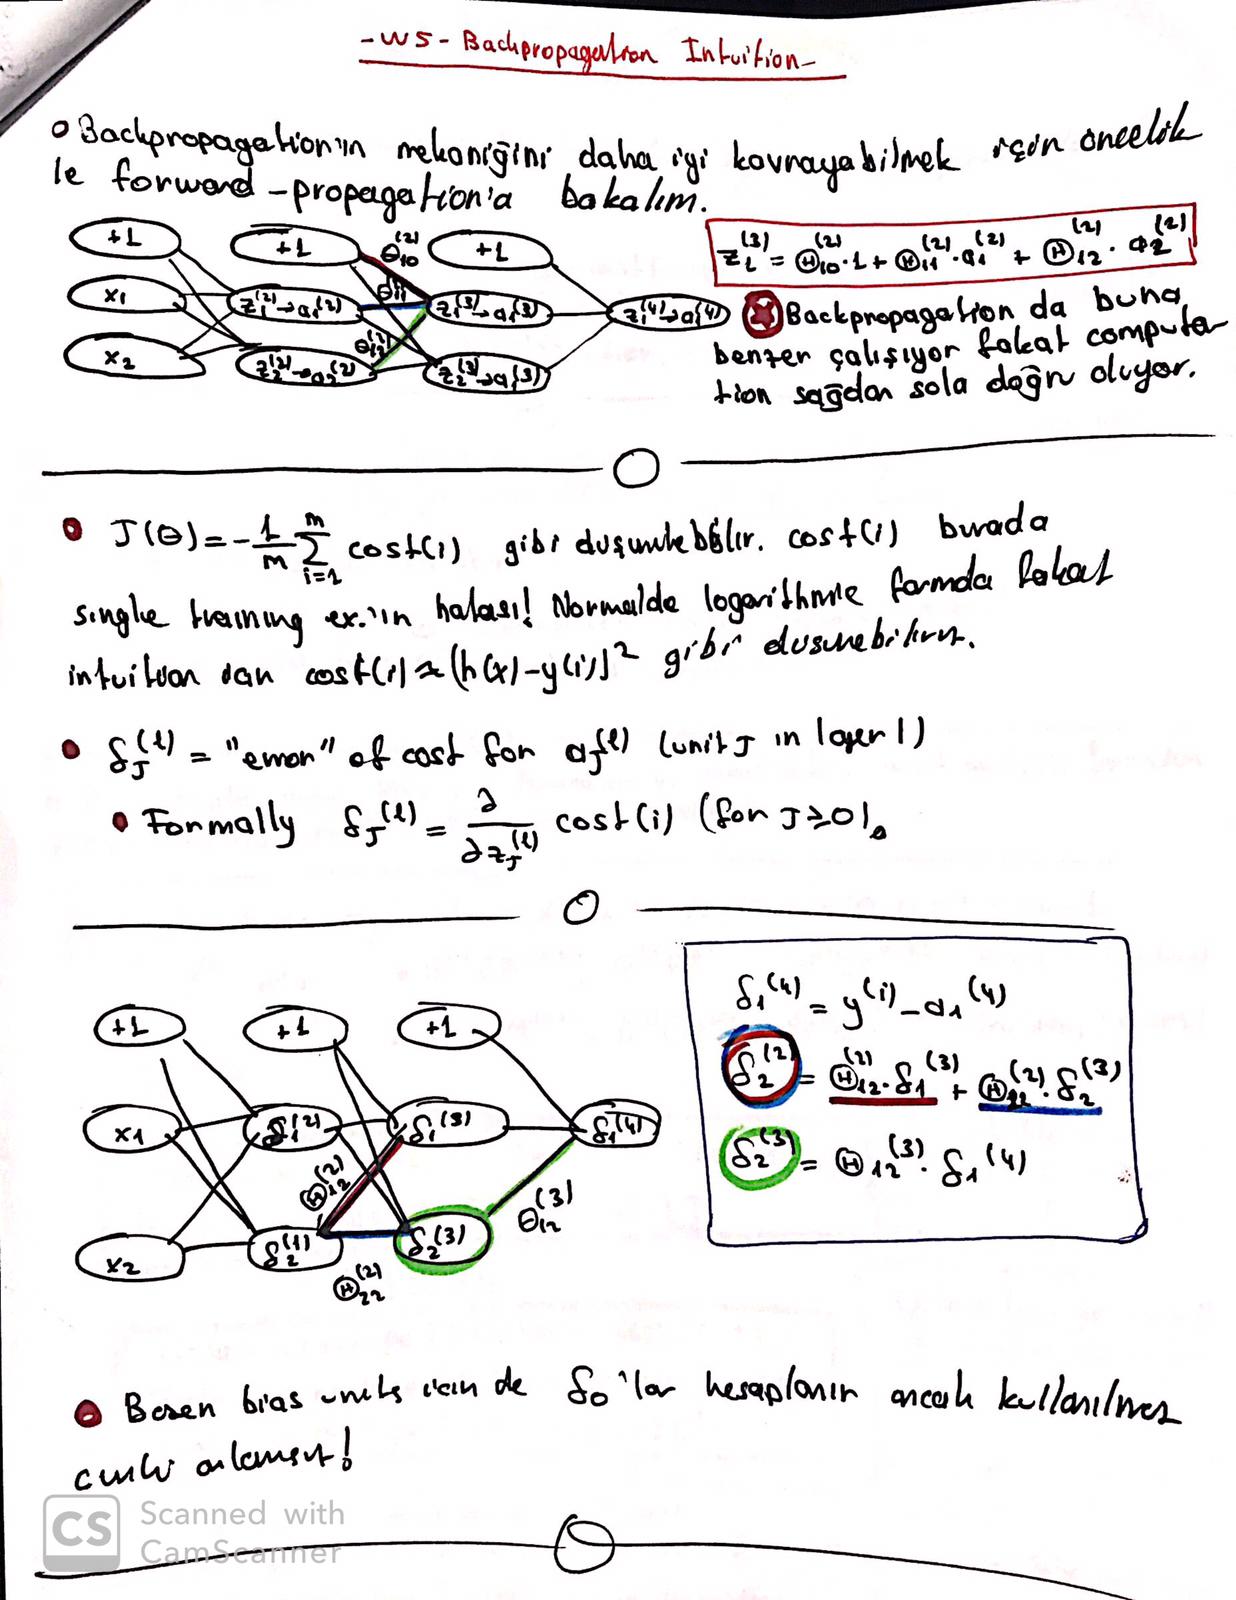 -W5- Backpropagation Intuition-
Backpropagation'ın mekaniğini daha iyi kavrayabilmek için öncelik
le forward-propagation'a bakalım.
+1 +1 Θ₁₀⁽²⁾ +1
z₁⁽³⁾ = Θ₁₀⁽²⁾.1 + Θ₁₁⁽²⁾.a₁⁽²⁾ + Θ₁₂⁽²⁾.a₂⁽²⁾
x₁ z₁⁽²⁾→a₁⁽²⁾ Θ₁₁ z₁⁽³⁾→a₁⁽³⁾ z₁⁽⁴⁾→a₁⁽⁴⁾
x₂ z₂⁽²⁾→a₂⁽²⁾ Θ₁₂⁽²⁾ z₂⁽³⁾→a₂⁽³⁾
Backpropagation da buna
benzer çalışıyor fakat computa
tion sağdan sola doğru oluyor.
J(Θ) = -1/m Σ i=1 m cost(i) gibi düşünülebilir. cost(i) burada
single training ex.'in hatası! Normalde logarithmic formda fakat
intuition dan cost(i) ≈ (h(x)-y(i))² gibi dusunebiliriz.
δⱼ⁽ˡ⁾ = "error" of cost for aⱼ⁽ˡ⁾ (unit J in layer l)
Formally δⱼ⁽ˡ⁾ = ∂/∂zⱼ⁽ˡ⁾ cost(i) (for J≥0).
+1 +1 +1
x₁ δ₁⁽²⁾ δ₁⁽³⁾ δ₁⁽⁴⁾
Θ₁₂⁽²⁾
x₂ δ₂⁽¹⁾ δ₂⁽³⁾ Θ₁₂⁽³⁾
Θ₂₂⁽²⁾
δ₁⁽⁴⁾ = y⁽ⁱ⁾ - a₁⁽⁴⁾
δ₂⁽²⁾ = Θ₁₂⁽²⁾.δ₁⁽³⁾ + Θ₂₂⁽²⁾.δ₂⁽³⁾
δ₂⁽³⁾ = Θ₁₂⁽³⁾.δ₁⁽⁴⁾
Bazen bias units icin de δ₀'lar hesaplanır ancak kullanılmaz
cunku anlamsız!
CS Scanned with
CamScanner